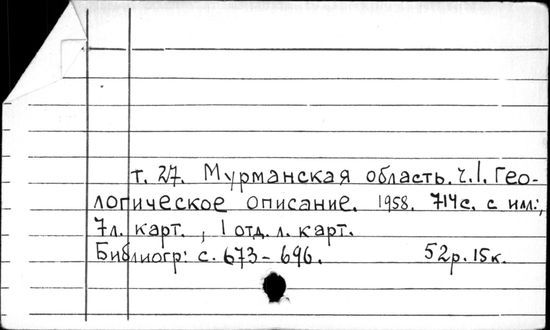 т. 27. Мурманская область. ч.1. Гео-
логическое описание. 1958. 714с. с ил.;
7л. карт., 1 отд. л. карт.
Библиогр: с. 673-696. 52р. 15к.